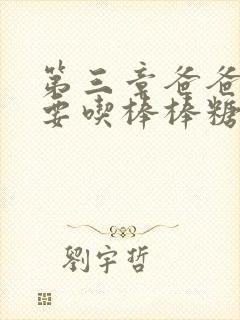 第三章爸爸
要喫棒棒糖
劉宇哲